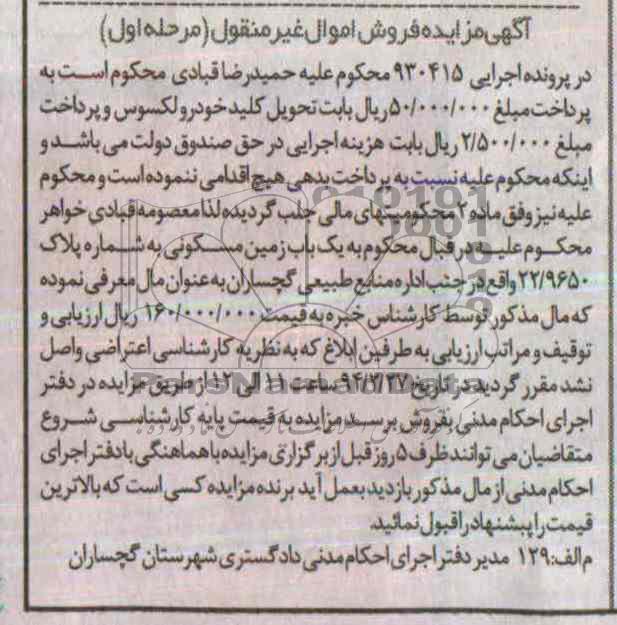 آگهی مزایده فروش اموال غیر منقول (مرحله اول)
در پرونده اجرایی ۹۳۰۴۱۵ محکوم علیه حمیدرضا قبادی محکوم است به
پرداخت مبلغ ۵۰/۰۰۰/۰۰۰ ریال بابت تحویل کلید خودرو لکسوس و پرداخت
مبلغ ۲/۵۰۰/۰۰۰ ریال بابت هزینه اجرایی در حق صندوق دولت می باشد و
اینکه محکوم علیه نسبت به پرداخت بدهی هیچ اقدامی ننموده است و محکوم
علیه نیز وفق ماده ۲ محکومیتهای مالی جلب گردیده لذا معصومه قبادی خواهر
محکوم علیه در قبال محکوم به یک باب زمین مسکونی به شماره پلاک
۲۲/۹۶۵۰ واقع در جنب اداره منابع طبیعی گچساران به عنوان مال معرفی نموده
که مال مذکور توسط کارشناس خبره به قیمت ۱۶۰/۰۰۰/۰۰۰ ریال ارزیابی و
توقیف و مراتب ارزیابی به طرفین ابلاغ که به نظریه کارشناسی اعتراضی واصل
نشد مقرر گردید در تاریخ ۹۴/۲/۲۷ ساعت ۱۱ الی ۱۲ از طریق مزایده در دفتر
اجرای احکام مدنی بفروش برسد مزایده به قیمت پایه کارشناسی شروع
متقاضیان می توانند ظرف ۵ روز قبل از برگزاری مزایده با هماهنگی با دفتر اجرای
احکام مدنی از مال مذکور بازدید بعمل آید برنده مزایده کسی است که بالاترین
قیمت را پیشنهاد را قبول نمائید.
م الف: ۱۲۹ مدیر دفتر اجرای احکام مدنی دادگستری شهرستان گچساران